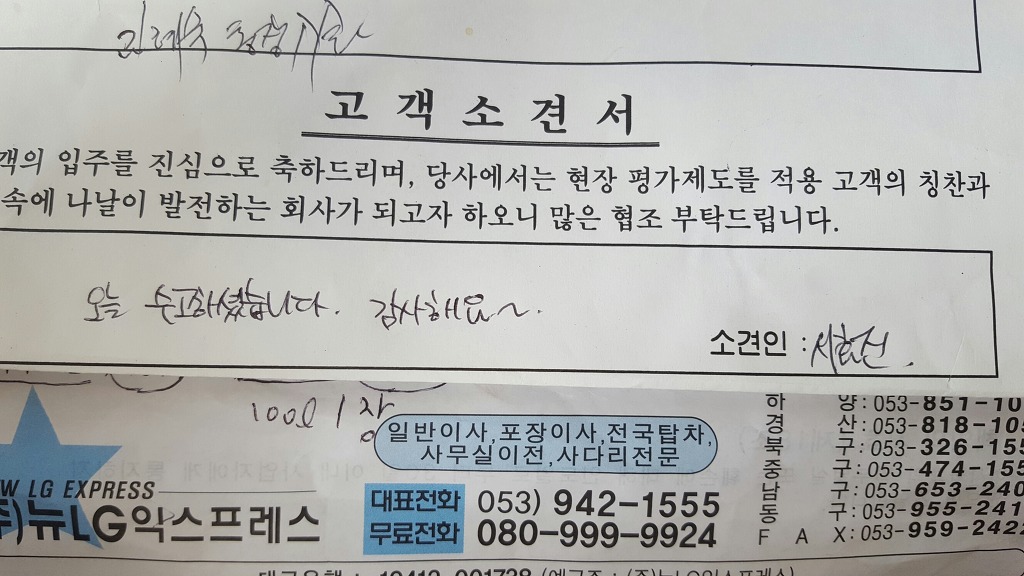 고객소견서
객의 입주를 진심으로 축하드리며, 당사에서는 현장 평가제도를 적용 고객의 칭찬과
속에 나날이 발전하는 회사가 되고자 하오니 많은 협조 부탁드립니다.
오늘 수고하셨습니다. 감사해요~.
소견인 : 서효선.
100ℓ 1장
일반이사,포장이사,전국탑차,
사무실이전,사다리전문
W LG EXPRESS
주)뉴LG익스프레스
대표전화 053) 942-1555
무료전화 080-999-9924
하 양: 053-851-10
경 산: 053-818-105
북 구: 053-326-155
중 구: 053-474-155
남 구: 053-653-240
동 구: 053-955-241
F A X: 053-959-2422